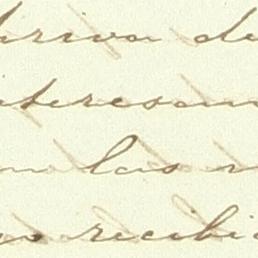 arriva de
interesan
n las
recibi